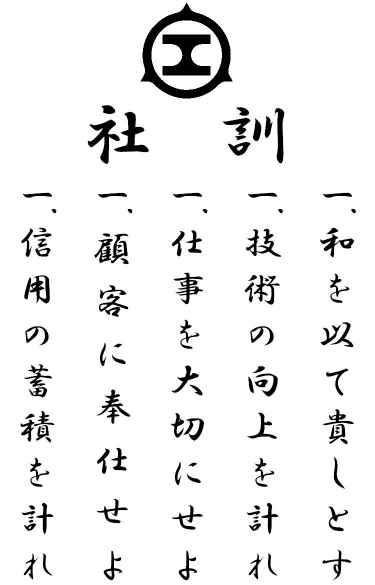 社訓
一、和を以て貴しとす
一、技術の向上を計れ
一、仕事を大切にせよ
一、顧客に奉仕せよ
一、信用の蓄積を計れ